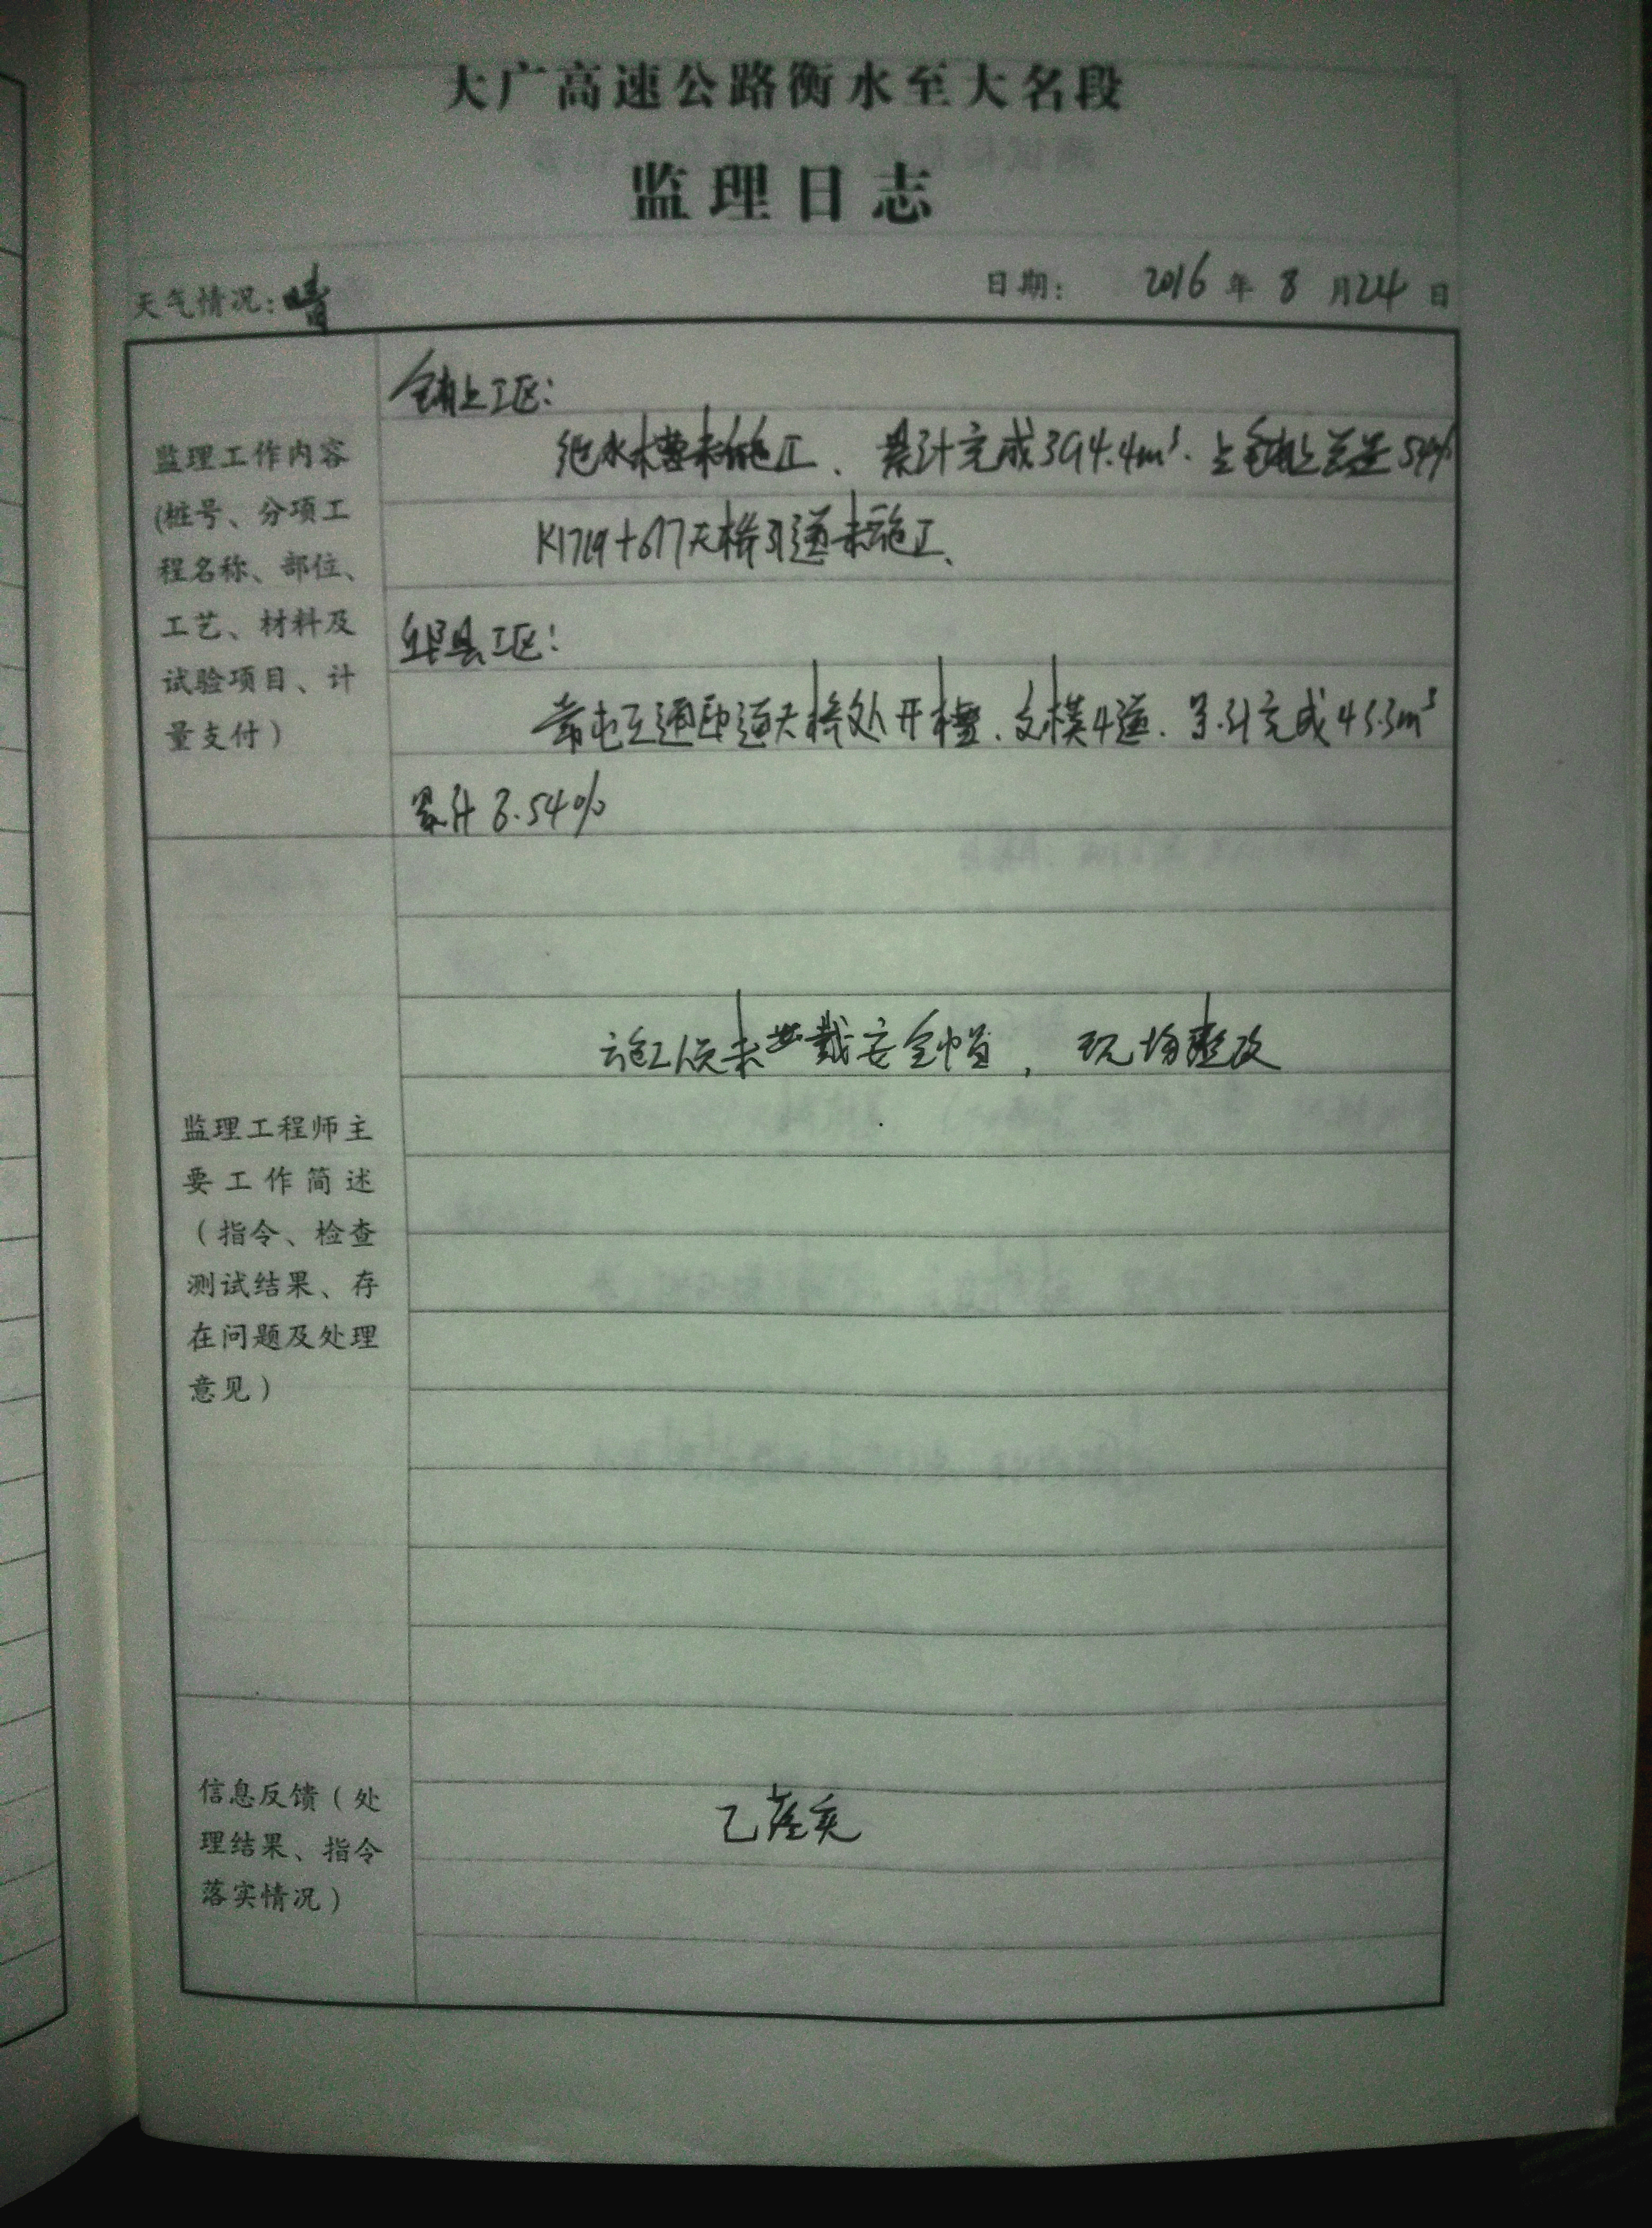 大广高速公路衡水至大名段
监理日志
天气情况：晴
日期： 2016 年 8 月 24 日
监理工作内容
(桩号、分项工
程名称、部位、
工艺、材料及
试验项目、计
量支付）
铺上工区：
水槽未施工、累计完成394.4m³. 占铺上总量54%
K1719+677天桥引道未施工、
邱县工区：
互通匝道天桥处开槽、支模4道、累计完成45.3m³
累计 8.54%
监理工程师主
要工作简述
（指令、检查
测试结果、存
在问题及处理
意见）
施工人员未戴安全帽，现场整改
信息反馈（处
理结果、指令
落实情况）
已落实